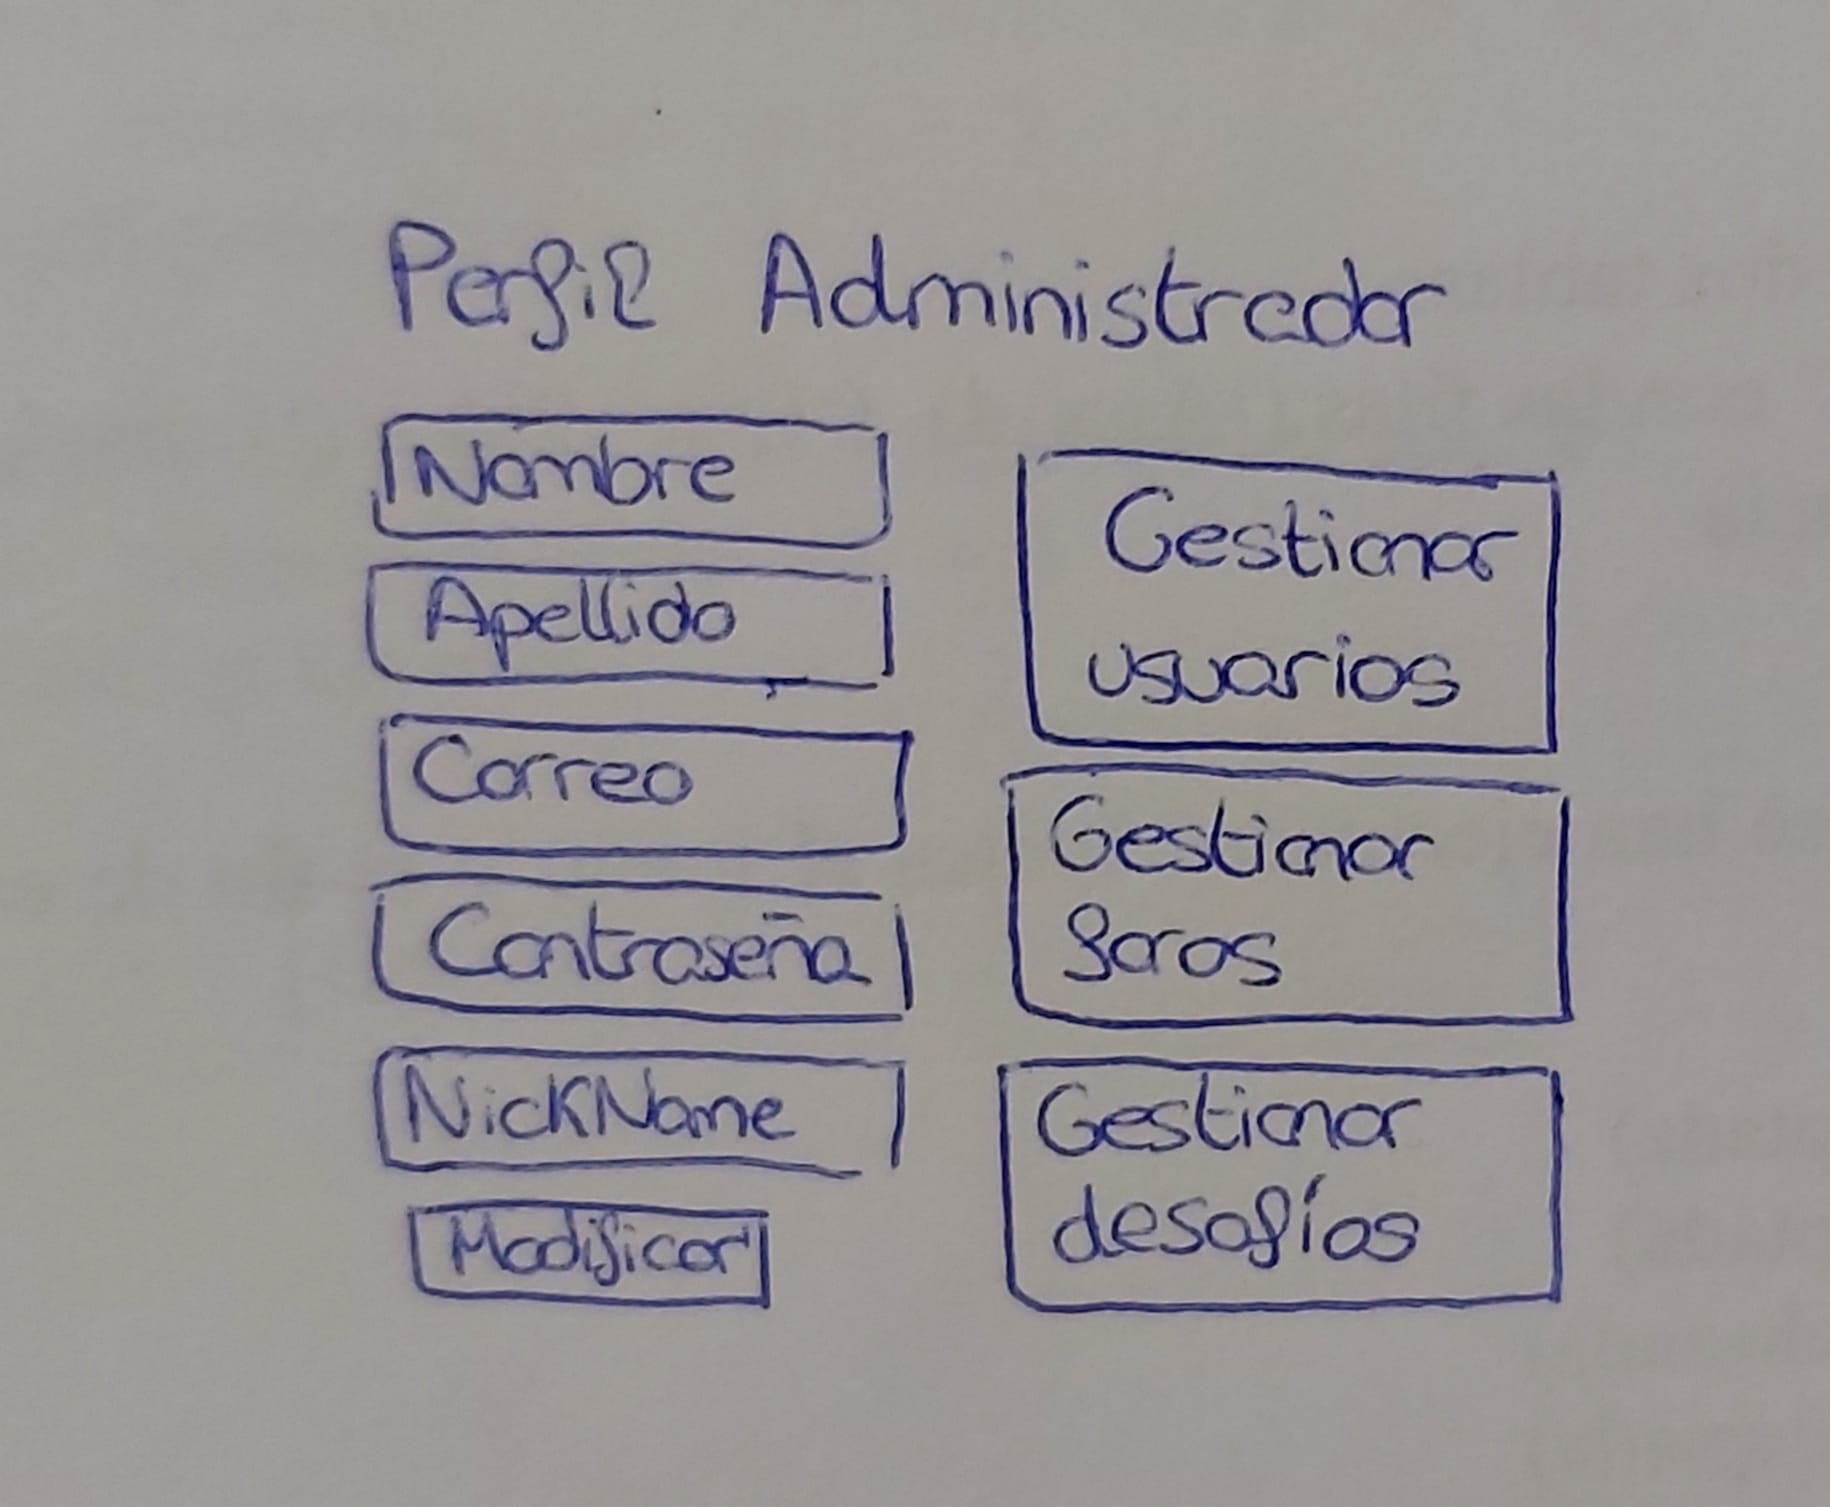 Perfil Administrador
Nombre
Apellido
Correo
Contraseña
NickName
Modificar
Gestionar
usuarios
Gestionar
foros
Gestionar
desafíos